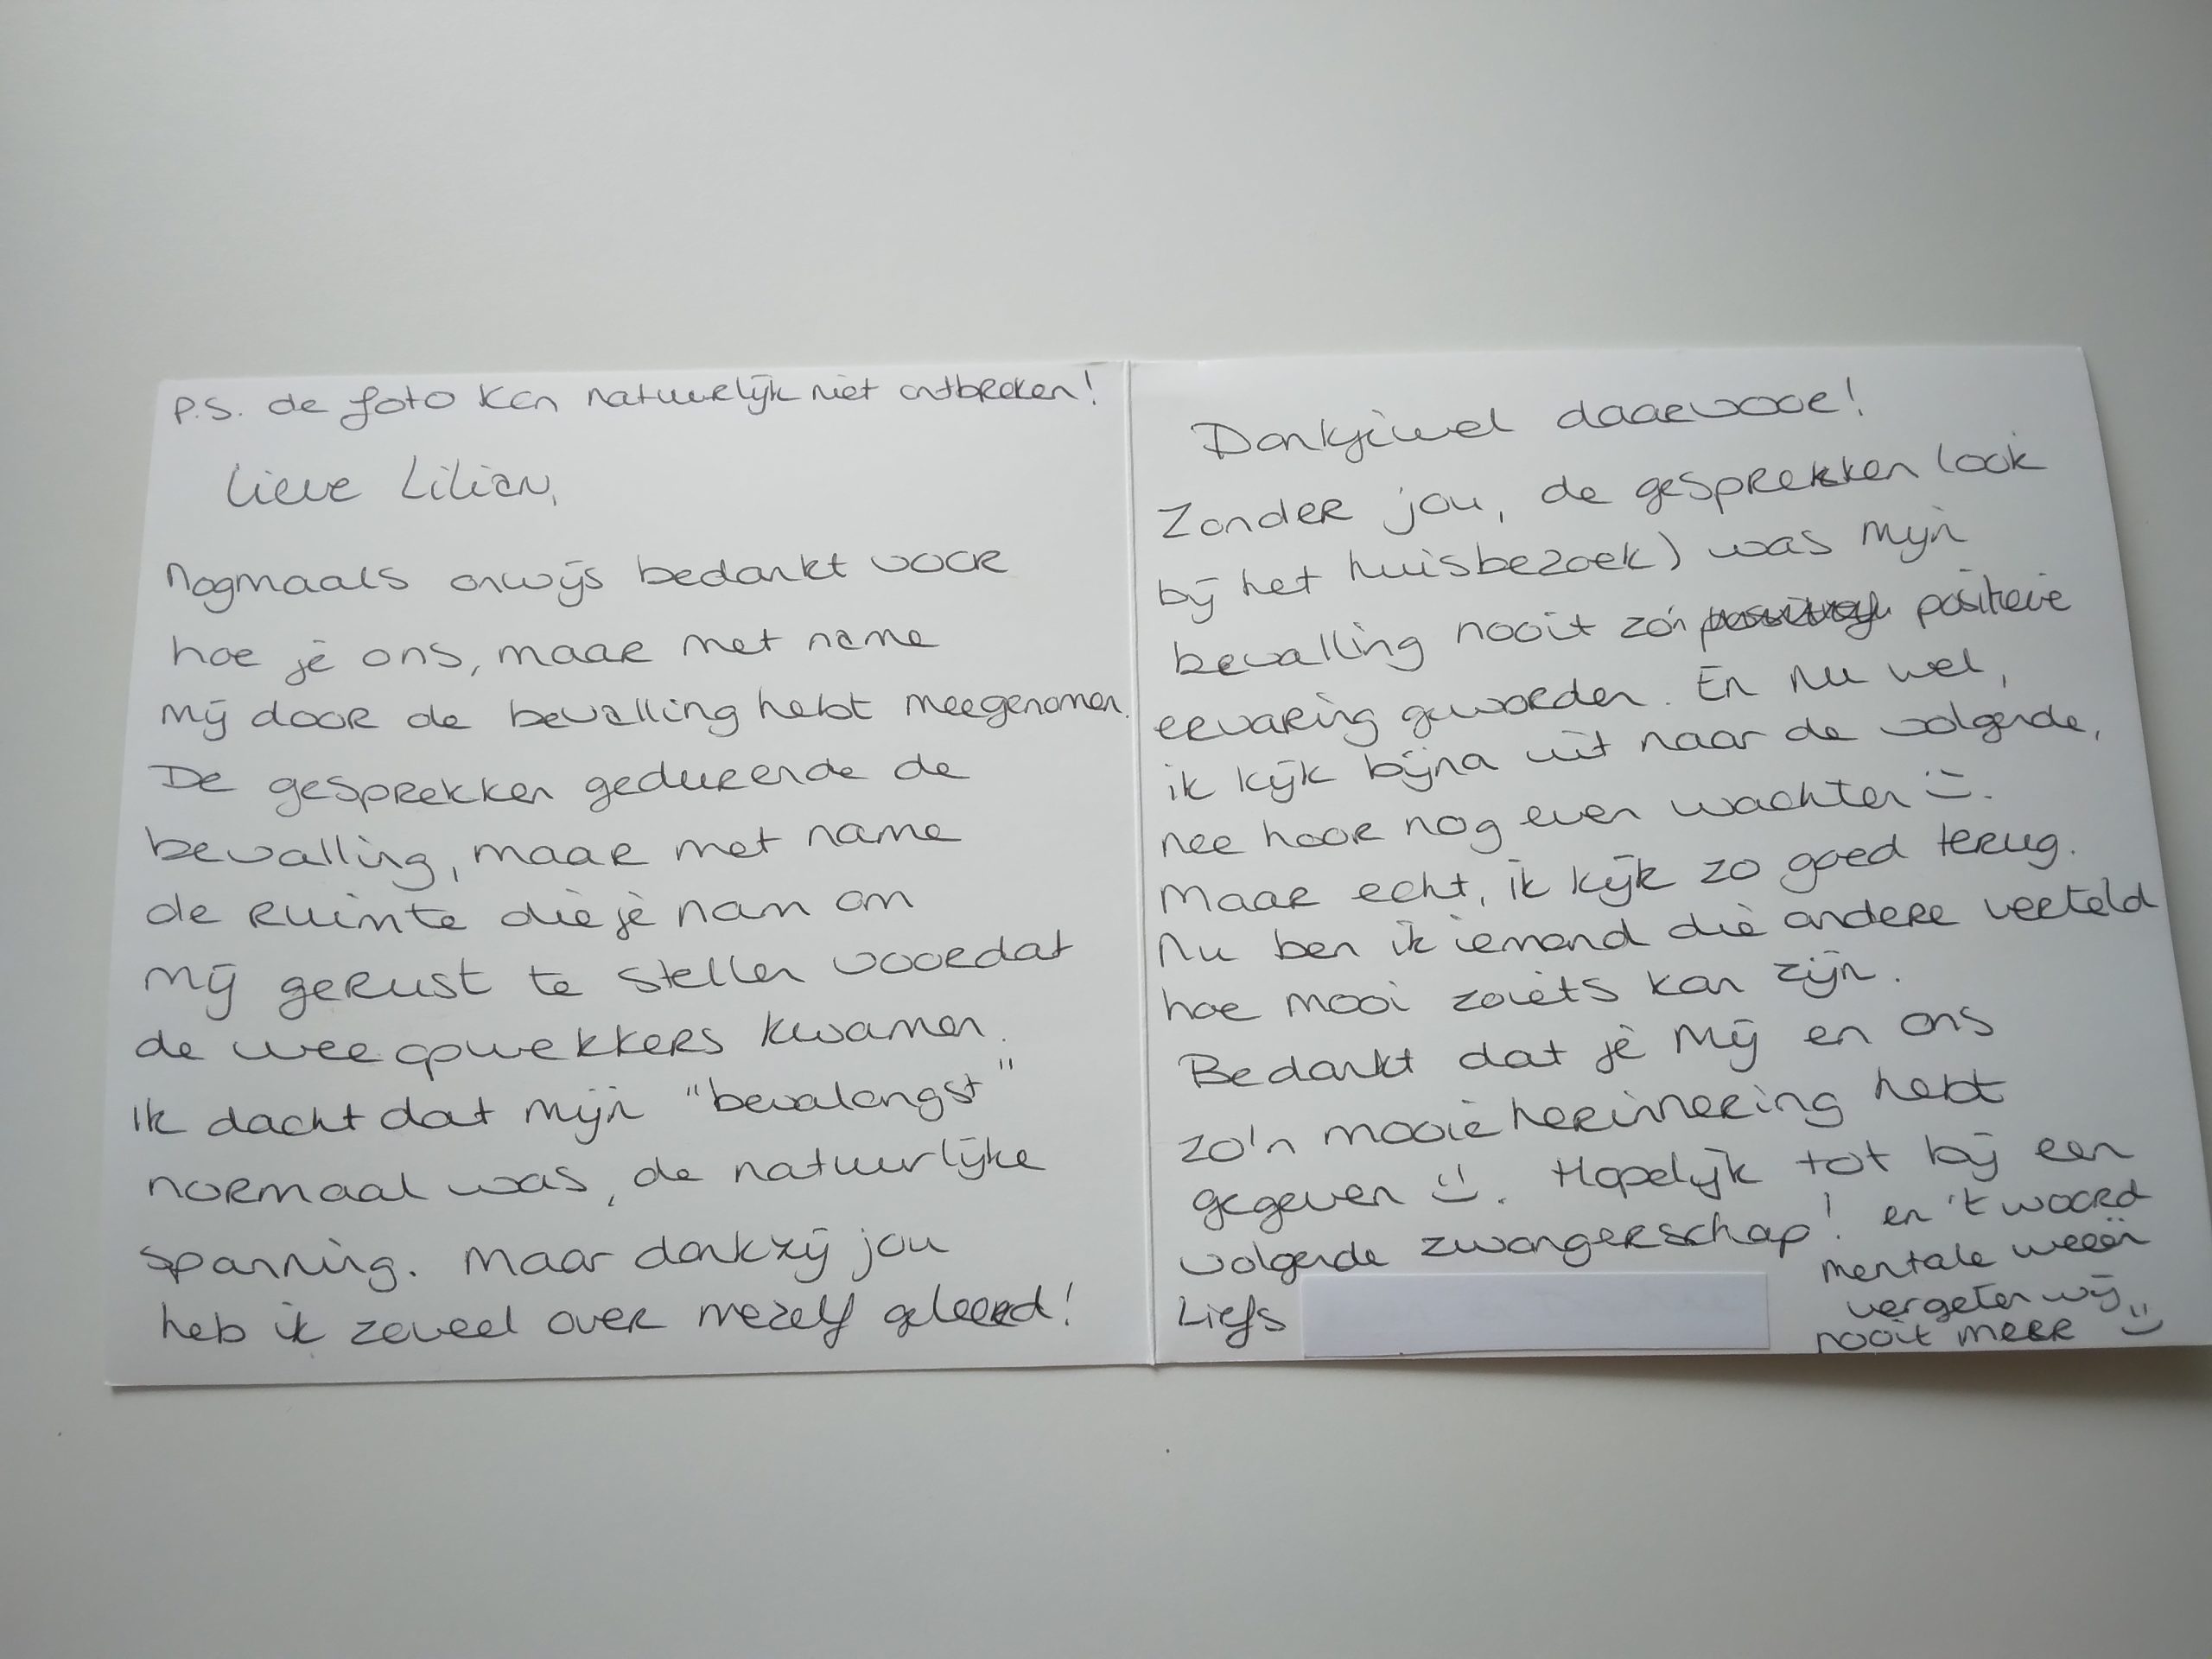 P.S. de foto kan natuurlijk niet ontbreken!
Lieve Lilian,
Nogmaals onwijs bedankt voor
hoe je ons, maar met name
mij door de bevalling hebt meegenomen.
De gesprekken gedurende de
bevalling, maar met name
de ruimte die je nam om
mij gerust te stellen voordat
de weeopwekkers kwamen.
Ik dacht dat mijn "bevalangst"
normaal was, de natuurlijke
spanning. Maar dankzij jou
heb ik zoveel over mezelf geleerd!
Dankjewel daarvoor!
Zonder jou, de gesprekken (ook
bij het huisbezoek) was mijn
bevalling nooit zo'n positieve
ervaring geworden. En nu wel,
ik kijk bijna uit naar de volgende,
nee hoor nog even wachten :).
Maar echt, ik kijk zo goed terug.
Nu ben ik iemand die andere verteld
hoe mooi zoiets kan zijn.
Bedankt dat je mij en ons
zo'n mooie herinnering hebt
gegeven :). Hopelijk tot bij een
volgende zwangerschap!
en 't woord
mentale weeën
vergeten wij
nooit meer :)
Liefs